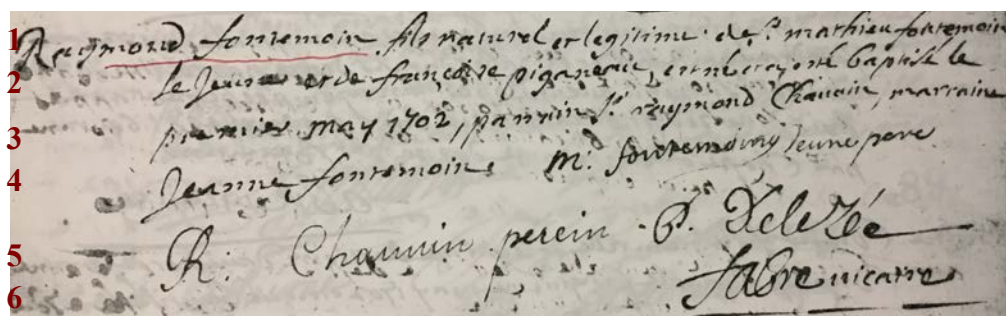 1 Raymond fontemoin fils naturel et legitime de Sr mathieu fontemoin
2 le Jeune et de françoise piganeau, ent né et a été baptisé le
3 premier may 1702, parrain Sr raymond Chauvin, marraine
4 Jeanne fontemoin. m. fontemoing Jeune pere
5 R. Chauvin parein P.
6 fabre vicaire